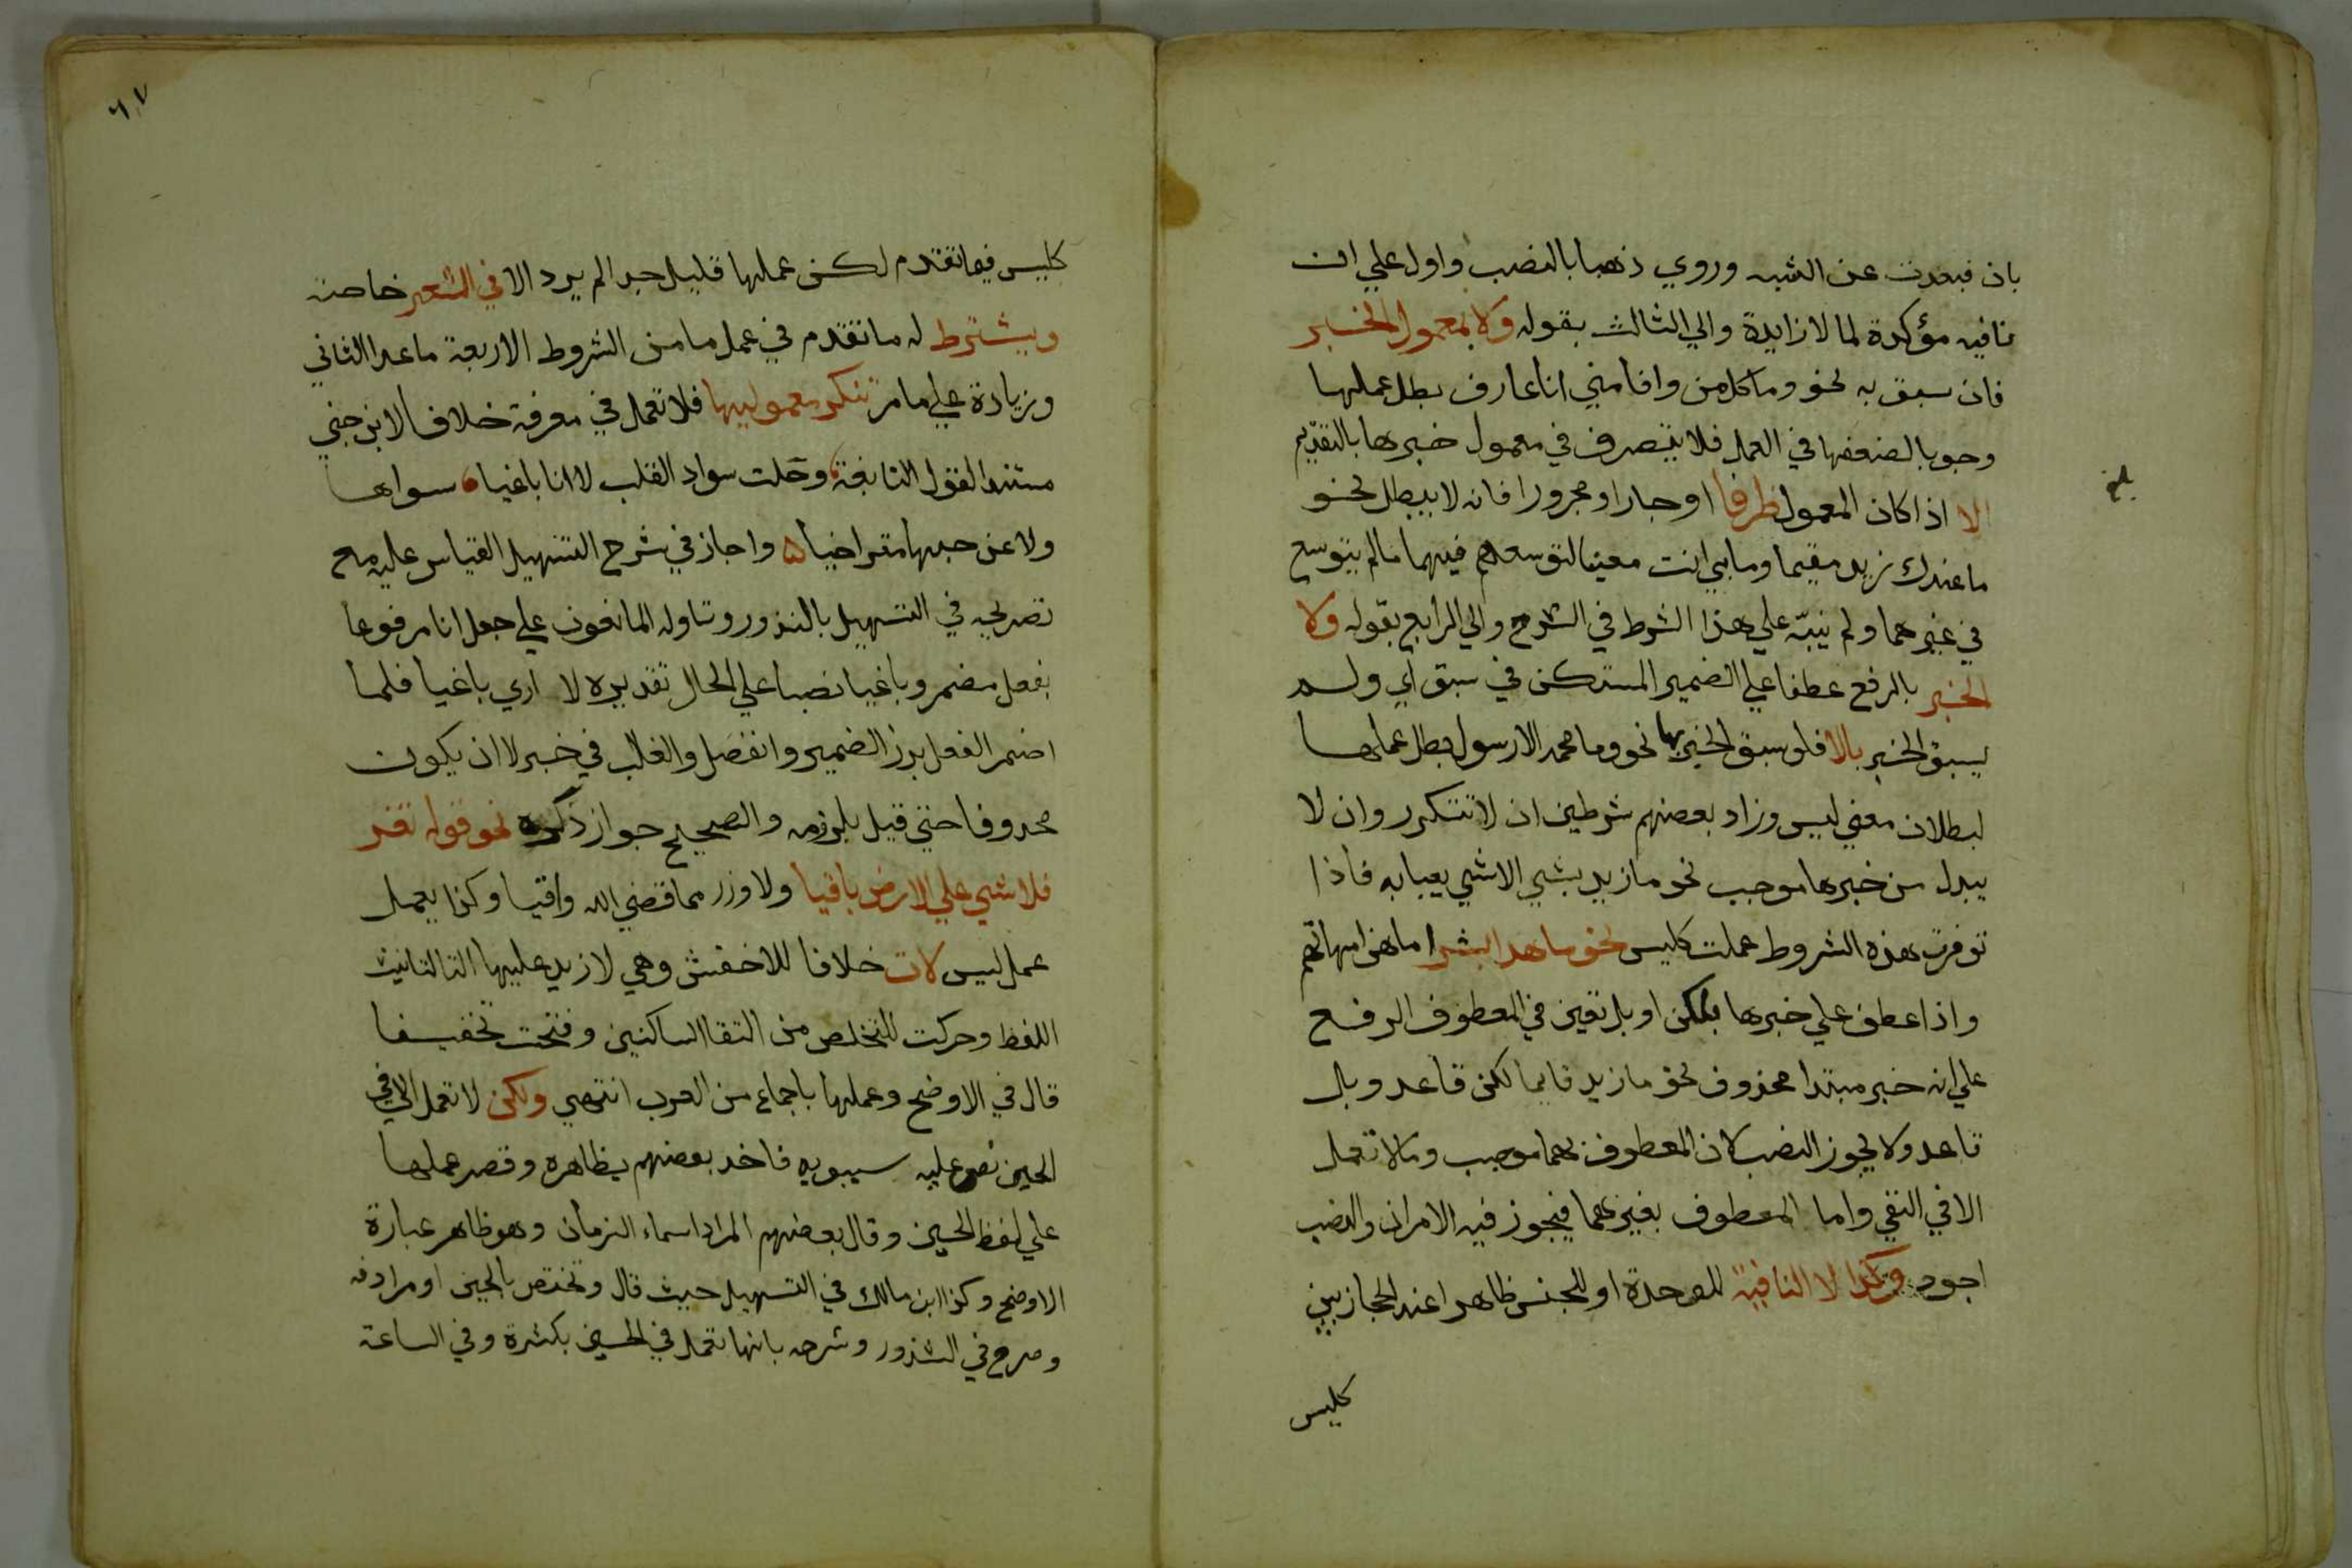 بان فبعدت عن الشبه وروي ذهبا بالنصب واول علي ان
نافيه مؤكدة لما لا زايدة والي الثالث بقوله ولا بمعمول الخبر
فان سبق به نحو وما كل من وافا مني انا عارف بطل عملها
وجوبا لضعفها في العمل فلا يتصرف في معمول خبرها بالتقديم
الا اذا كان المعمول ظرفا او جارا ومجرورا فانه لا يبطل نحو
ما عندك زيد مقيما وما بي انت معنيا لتوسعهم فيهما ما لم يتوسع
في غيرهما ولم ينبّه علي هذا الشرط في الشرح والي الرابع بقوله ولا
الخبر بالرفع عطفا علي الضمير المستكن في سبق اي ولم
يسبق الخبر بالا فلو سبق الخبر بها نحو وما محمد الا رسول بطل عملها
لبطلان معني ليس وزاد بعضهم شرطين ان لا تتكرر وان لا
يبدل من خبرها موجب نحو ما زيد بشي الا شي يعبا به فاذا
توفرت هذه الشروط عملت كليس نحو ما هذا بشرا ما هن امهاتهم
واذا عطف علي خبرها بلكن او بل تعين في المعطوف الرفع
علي انه خبر مبتدا محذوف نحو ما زيد قايما لكن قاعد وبل
قاعد ولا يجوز النصب لان المعطوف بهما موجب وما لا تعمل
الا في النفي واما المعطوف بغيرهما فيجوز فيه الامران والنصب
اجود وكذا لا النافية للوحدة او للجنس ظاهرا عند الحجازيين
كليس
بلغ
٦٧
كليس فيما تقدم لكن عملها قليل جدا لم يرد الا في الشعر خاصة
ويشترط له ما تقدم في عمل ما من الشروط الاربعة ما عدا الثاني
وزيادة علي ما مر تنكير معموليها فلا تعمل في معرفة خلافا لابن جني
مستندا لقول النابغة وحلت سواد القلب لا انا باغيا سواها
ولا عن حبها متراخيا ۵ واجاز في شرح التسهيل القياس عليه مع
تصريحه في التسهيل بالنذور وتاوله المانعون علي جعل انا مرفوعا
بفعل مضمر وباغيا نصبا علي الحال تقديره لا اري باغيا فلما
اضمر الفعل برز الضمير وانفصل والغالب في خبر لا ان يكون
محذوفا حتي قيل بلزومه والصحيح جواز ذكره نحو قوله تعز
فلا شي علي الارض باقيا ولا وزر مما قضي الله واقيا وكذا يعمل
عمل ليس لات خلافا للاخفش وهي لا زيد عليها التا لتانيث
اللفظ وحركت للتخلص من التقا الساكنين وفتحت تخفيفا
قال في الاوضح وعملها باجماع من العرب انتهي ولكن لا تعمل الا في
الحين نص عليه سيبويه فاخذ بعضهم بظاهره وقصر عملها
علي لفظ الحين وقال بعضهم المراد اسماء الزمان وهو ظاهر عبارة
الاوضح وكذا ابن مالك في التسهيل حيث قال وتختص بالحين او مرادفه
وصرح في الشذور وشرحه بانها تعمل في الحين بكثرة وفي الساعة